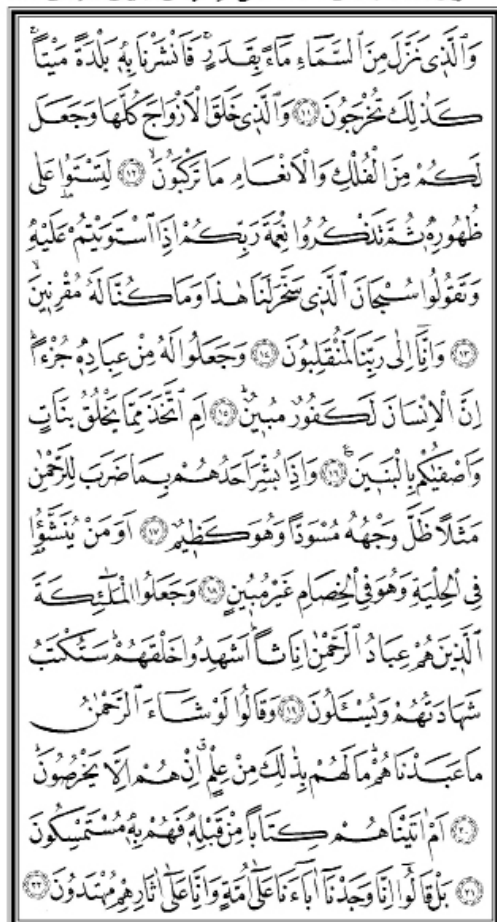 وَالَّذٖى نَزَّلَ مِنَ السَّمَٓاءِ مَٓاءً بِقَدَرٍۚ فَاَنْشَرْنَا بِهٖ بَلْدَةً مَيْتاًۚ
كَذٰلِكَ تُخْرَجُونَ ﴿١١﴾ وَالَّذٖى خَلَقَ الْاَزْوَاجَ كُلَّهَا وَجَعَلَ
لَكُمْ مِنَ الْفُلْكِ وَالْاَنْعَامِ مَا تَرْكَبُونَۙ ﴿١٢﴾ لِتَسْتَوُ۫ا عَلٰى
ظُهُورِهٖ ثُمَّ تَذْكُرُوا نِعْمَةَ رَبِّكُمْ اِذَا اسْتَوَيْتُمْ عَلَيْهِ
وَتَقُولُوا سُبْحَانَ الَّذٖى سَخَّرَ لَنَا هٰذَا وَمَا كُنَّا لَهُ مُقْرِنٖينَۙ
﴿١٣﴾ وَاِنَّٓا اِلٰى رَبِّنَا لَمُنْقَلِبُونَ ﴿١٤﴾ وَجَعَلُوا لَهُ مِنْ عِبَادِهٖ جُزْءاًؕ
اِنَّ الْاِنْسَانَ لَكَفُورٌ مُبٖينٌؕ ﴿١٥﴾ اَمِ اتَّخَذَ مِمَّا يَخْلُقُ بَنَاتٍ
وَاَصْفٰيكُمْ بِالْبَنٖينَؕ ﴿١٦﴾ وَاِذَا بُشِّرَ اَحَدُهُمْ بِمَا ضَرَبَ لِلرَّحْمٰنِ
مَثَلاً ظَلَّ وَجْهُهُ مُسْوَداًّ وَهُوَ كَظٖيمٌ ﴿١٧﴾ اَوَمَنْ يُنَشَّؤُ۬ا
فِى الْحِلْيَةِ وَهُوَ فِى الْخِصَامِ غَيْرُ مُبٖينٍ ﴿١٨﴾ وَجَعَلُوا الْمَلٰٓئِكَةَ
الَّذٖينَ هُمْ عِبَادُ الرَّحْمٰنِ اِنَاثاًؕ اَشَهِدُوا خَلْقَهُمْؕ سَتُكْتَبُ
شَهَادَتُهُمْ وَيُسْـَٔلُونَ ﴿١٩﴾ وَقَالُوا لَوْ شَٓاءَ الرَّحْمٰنُ
مَا عَبَدْنَاهُمْؕ مَا لَهُمْ بِذٰلِكَ مِنْ عِلْمٍۗ اِنْ هُمْ اِلَّا يَخْرُصُونَؕ
﴿٢٠﴾ اَمْ اٰتَيْنَاهُمْ كِتَاباً مِنْ قَبْلِهٖ فَهُمْ بِهٖ مُسْتَمْسِكُونَ
﴿٢١﴾ بَلْ قَالُٓوا اِنَّا وَجَدْنَٓا اٰبَٓاءَنَا عَلٰٓى اُمَّةٍ وَاِنَّا عَلٰٓى اٰثَارِهِمْ مُهْتَدُونَ ﴿٢٢﴾